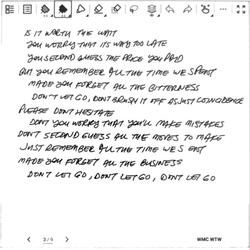 IS IT WORTH THE WAIT
YOU WORRY THAT ITS WAY TOO LATE
YOU SECOND GUESS THE PRICE YOU PAID
BUT YOU REMEMBER ALL THE TIME WE SPENT
MADE YOU FORGET ALL THE BITTERNESS
DON'T LET GO, DON'T BRUSH IT OFF AS JUST COINCIDENCE
PLEASE DON'T HESITATE
DON'T YOU WORRY THAT YOU'LL MAKE MISTAKES
DON'T SECOND GUESS ALL THE MOVES TO MAKE
JUST REMEMBER ALL THE TIME WE S ENT
MADE YOU FORGET ALL THE BUSINESS
DON'T LET GO, DON'T LET GO, DON'T LET GO
WMC WTW